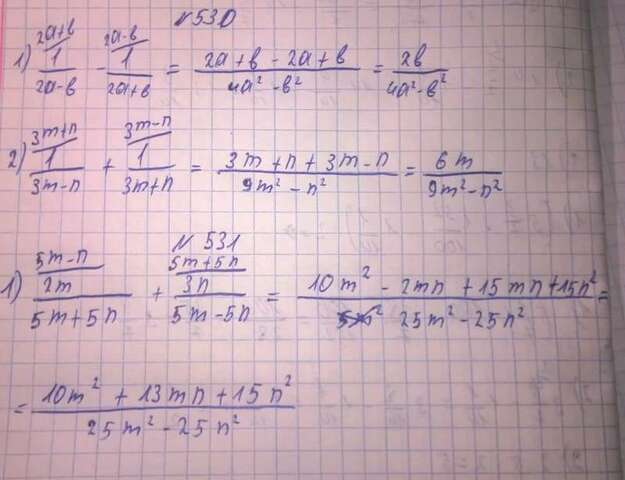 №530
1) 2a+в/ 1/(2a-в) - 2a-в/ 1/(2a+в) = (2a+в-2a+в)/(4a²-в²) = 2в/(4a²-в²)
2) 3m+n/ 1/(3m-n) + 3m-n/ 1/(3m+n) = (3m+n+3m-n)/(9m²-n²) = 6m/(9m²-n²)
№531
1) 5m-n/ 2m/(5m+5n) + 5m+5n/ 3n/(5m-5n) = (10m²-2mn+15mn+15n²)/(25m²-25n²) =
= (10m²+13mn+15n²)/(25m²-25n²)